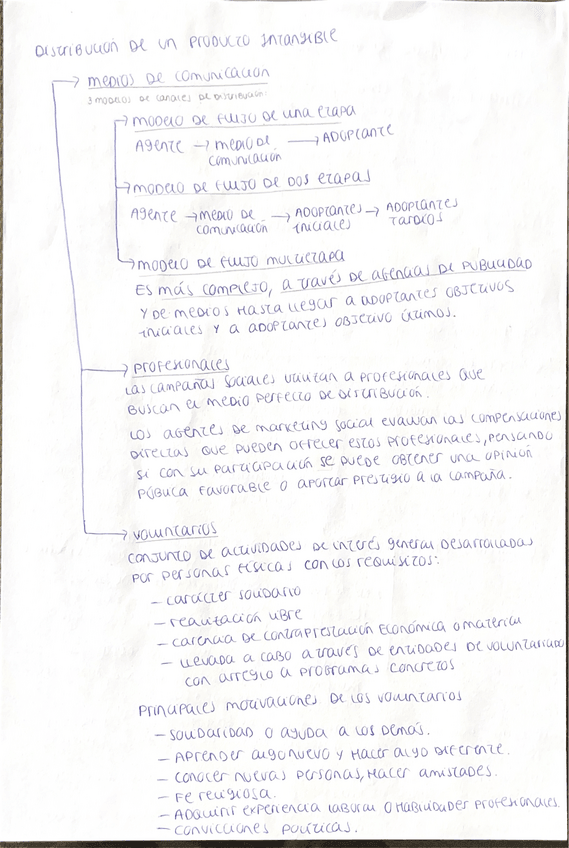 DISTRIBUCIÓN DE UN PRODUCTO INTANGIBLE
MEDIOS DE COMUNICACIÓN
3 MODELOS DE CANALES DE DISTRIBUCIÓN:
MODELO DE FLUJO DE UNA ETAPA
AGENTE → MEDIO DE COMUNICACIÓN → ADOPTANTE
MODELO DE FLUJO DE DOS ETAPAS
AGENTE → MEDIO DE COMUNICACIÓN → ADOPTANTES INICIALES → ADOPTANTES TARDÍOS
MODELO DE FLUJO MULTIETAPA
ES MÁS COMPLEJO, A TRAVÉS DE AGENCIAS DE PUBLICIDAD
Y DE MEDIOS HASTA LLEGAR A ADOPTANTES OBJETIVOS
INICIALES Y A ADOPTANTES OBJETIVO ÚLTIMOS.
PROFESIONALES
LAS CAMPAÑAS SOCIALES UTILIZAN A PROFESIONALES QUE
BUSCAN EL MEDIO PERFECTO DE DISTRIBUCIÓN.
LOS AGENTES DE MARKETING SOCIAL EVALÚAN LAS COMPENSACIONES
DIRECTAS QUE PUEDEN OFRECER ESTOS PROFESIONALES, PENSANDO
SI CON SU PARTICIPACIÓN SE PUEDE OBTENER UNA OPINIÓN
PÚBLICA FAVORABLE O APORTAR PRESTIGIO A LA CAMPAÑA.
VOLUNTARIOS
CONJUNTO DE ACTIVIDADES DE INTERÉS GENERAL DESARROLLADAS
POR PERSONAS FÍSICAS CON LOS REQUISITOS:
- CARÁCTER SOLIDARIO
- REALIZACIÓN LIBRE
- CARENCIA DE CONTRAPRESTACIÓN ECONÓMICA O MATERIAL
- LLEVADA A CABO A TRAVÉS DE ENTIDADES DE VOLUNTARIADO
CON ARREGLO A PROGRAMAS CONCRETOS
PRINCIPALES MOTIVACIONES DE LOS VOLUNTARIOS
- SOLIDARIDAD O AYUDA A LOS DEMÁS.
- APRENDER ALGO NUEVO Y HACER ALGO DIFERENTE.
- CONOCER NUEVAS PERSONAS, HACER AMISTADES.
- FE RELIGIOSA.
- ADQUIRIR EXPERIENCIA LABORAL O HABILIDADES PROFESIONALES.
- CONVICCIONES POLÍTICAS.